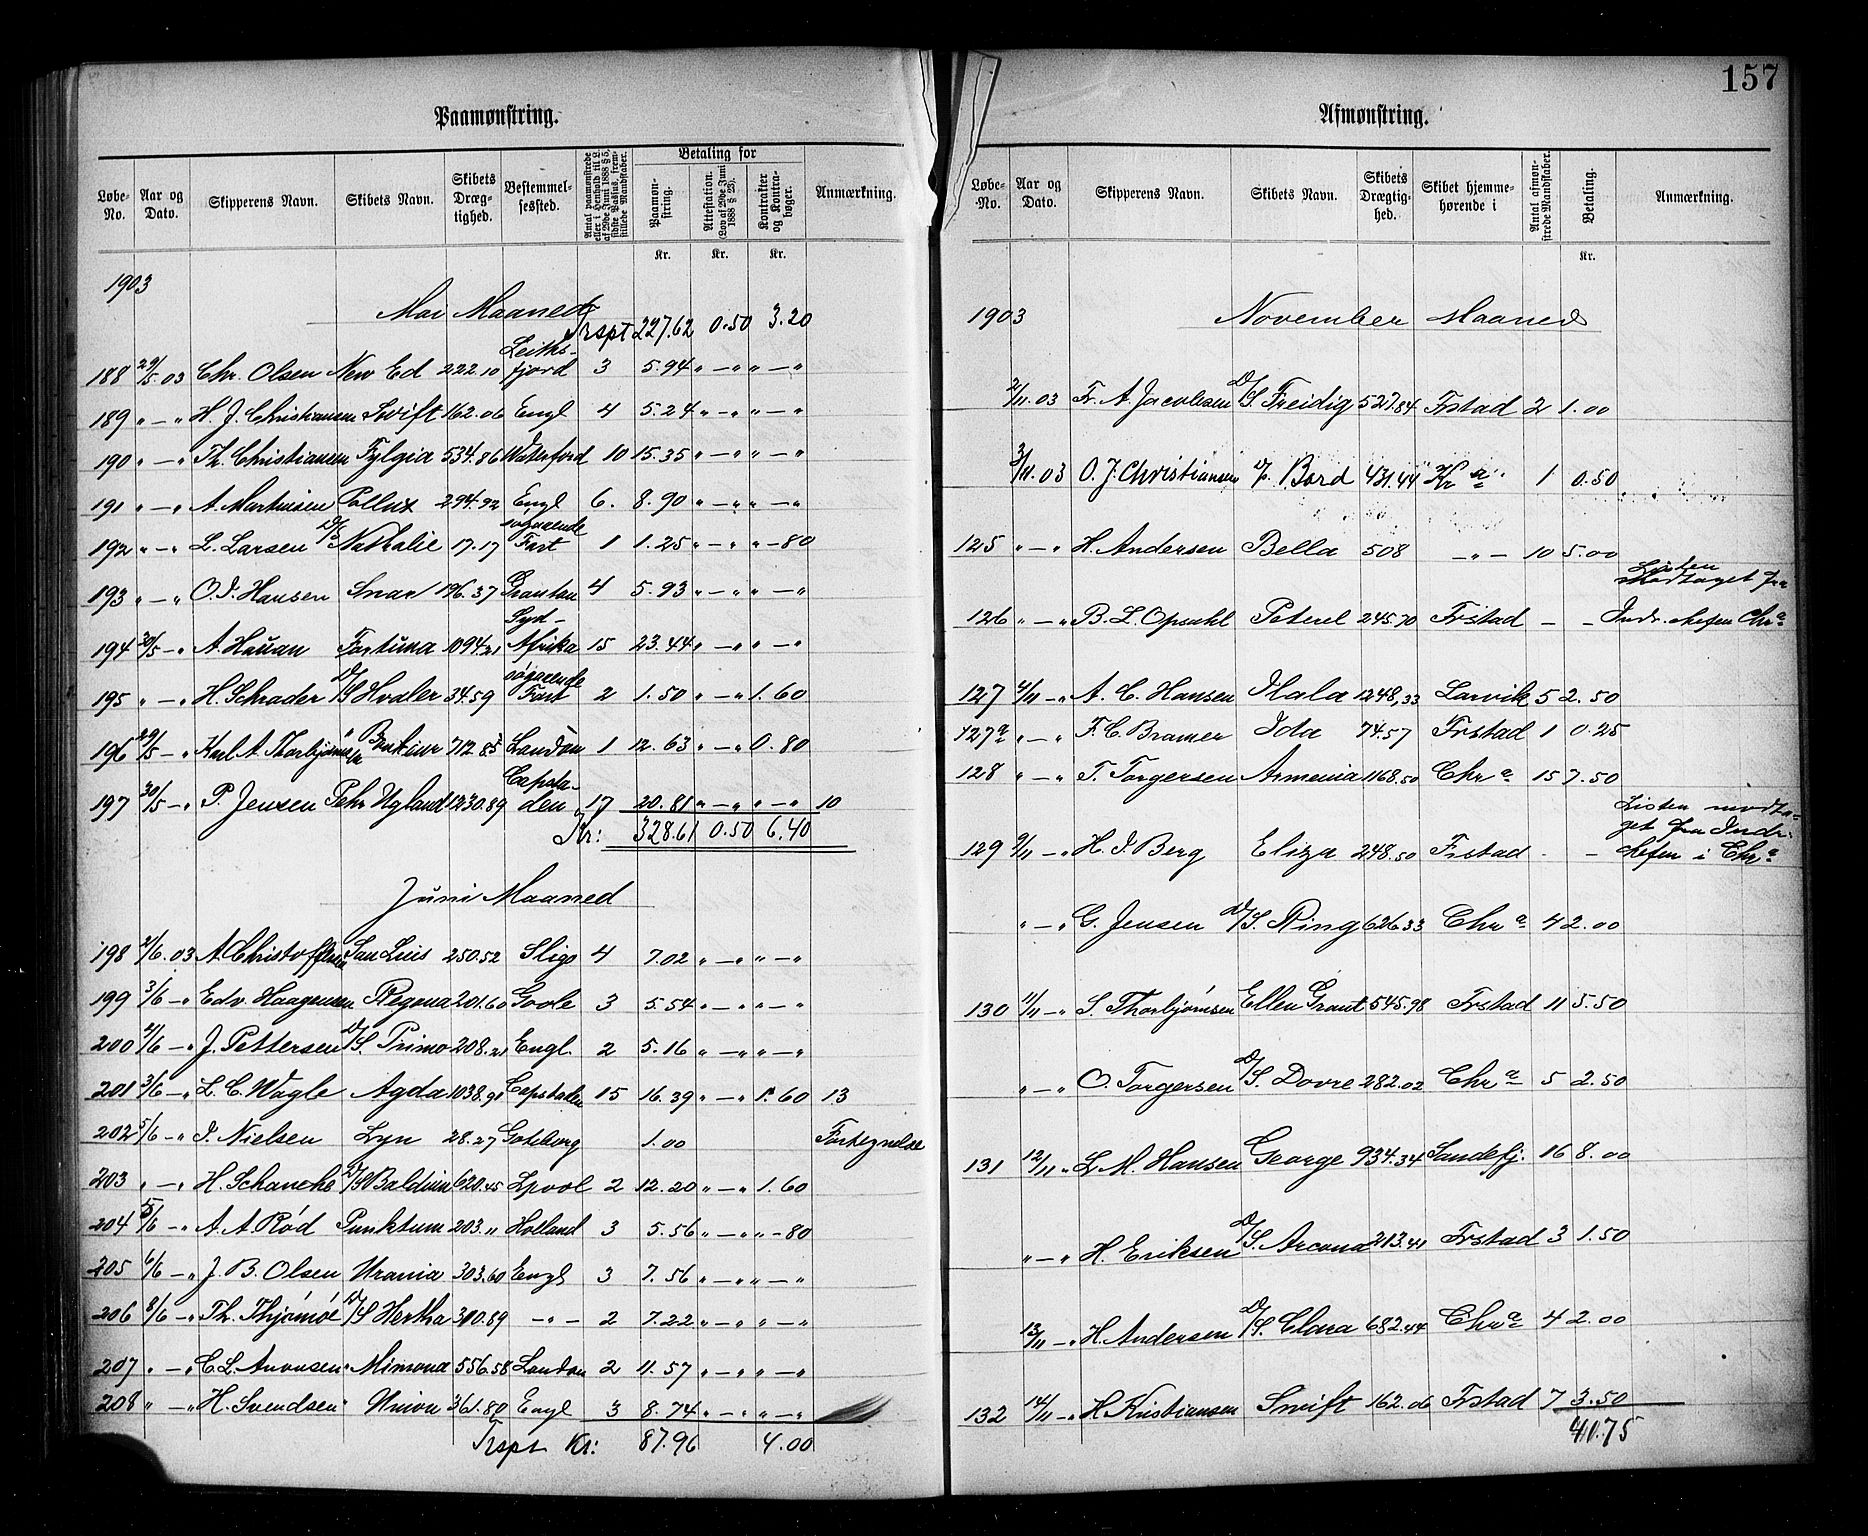 157
Paamønstring.
Løbe-No. Aar og Dato. Skipperens Navn. Skibets Navn. Skibets Dræg-tighed. Bestemmel-sessted. Antal paamønstrede eller i Henhold til L. af 29de Juni 1888 § 5, sidste Passus, frem-stillede Mandskaber. Betaling for Paamøn-string. Attestation. (Lov af 29de Juni 1888 § 23). Kontrakter og Kontra-bøger. Anmærkning.
Kr. Kr. Kr.
1903
Mai Maaned
Trspt 227.62 0.50 3.20
188 29/5.03 Chr. Olsen New Ed 222.10 Leiths-fjord 3 5.94 " — " " — "
189 " — " H. J. Christiansen Swift 162.06 Engl 4 5.24 " — " " — "
190 " — " Th. Christiansen Fylgia 534.86 Waterford 10 15.35 " — " " — "
191 " — " A. Martinsen Pollux 294.92 Engl 6. 8.90 " — " " — "
192 " — " L. Larsen D/S Nathalie 17.17 Fart 1 1.25 " — " " — 80
193 " — " O. J. Hansen Snar 196.37 Granton 4 5.93 " — " " — "
194 30/5 — " A. Hauan Fortuna 1094.21 Syd-Afrika 15 23.44 " — " " — "
195 " — " H. Schrader D/S Hvaler 34.59 Fart 2 1.50 " — " 1.60
196 29/5 — " Karl A. 712.85 London 1 12.63 " — " 0.80
197 30/5 — " P. Jensen Pehr Ugland 1230.89 Capsta-den 17 20.81 " — " " — " 10
Kr: 328.61 0.50 6.40
Juni Maaned
198 2/6.03 A. Christoffersen San Luis 250.52 Sligo 4 7.02 " — " " — "
199 3/6 — " Edv. Haagensen Regena 201.60 Goole 3 5.54 " — " " — "
200 2/6 — " J. Pettersen D/S. Primo 208.21 Engl. 2 5.16 " — " " — "
201 3/6 — " L. C. Wagle Agda 1038.91 Capstaden 15 16.39 " — " 1.60 13
202 5/6 — " J. Nielsen Lyn 28.27 Goteborg 1.00 Fortegnelse
203 " — " H. Schanche D/S Baldwin 620.45 Lpool 2 12.20 " — " 1.60
204 5/6 — " A. A. Rød Punktum 203.11 Holland 3 5.56 " — " " — 80
205 6/6 — " J. B. Olsen Urania 303.60 Engl 3 7.56 " — " " — "
206 8/6 — " Th. Thjømøe D/S Hertha 310.89 — " — 2 7.22 " — " " — "
207 " — " C. L. Anonsen Mimona 556.58 London 2 11.57 " — " " — "
208 " — " H. Svendsen Union 361.80 Engl 3 8.74 " — " " — "
Trspt Kr: 87.96 4.00
Afmønstring.
Løbe-No. Aar og Dato. Skipperens Navn. Skibets Navn. Skibets Drægtig-hed. Skibet hjemme-hørende i Antal afmøn-strede Mandskaber. Betaling. Anmærkning.
Kr.
1903 November Maaned
2/11.03 Fr. A. Jacobsen D/S. Freidig 527.84 Frstad 2 1.00
3/11.03 O. J. Christiansen D/S. Bard 431.44 Kra 1 0.50
125 " — " H. Andersen Bella 508 — " — 10 5.00
126 " — " B. L. Opsahl Petrel 245.70 Frstad — — Listen Modtaget fra Indr. chefen Chra
127 4/11 — " A. C. Hansen Hala 1248,33 Larvik 5 2.50
127a " — " F. C. Bramer Ida 74.57 Frstad 1 0.25
128 " — " T. Torgersen Armenia 1168.50 Chra 15 7.50
129 9/11 — " H. J. Berg Eliza 248.50 Frstad - — Listen modta-get fra Indr. chefen i Chra
" — " G. Jensen D/S. Ring 626.33 Chra 4 2.00
130 11/11 — " S. Thorbjørnsen Ellen Grant 545.98 Frstad 11 5.50
" — " O. Torgersen D/S. Dovre 282.02 Chra 5 2.50
131 12/11 " L. M. Hansen George 934.34 Sandefj. 16 8.00
" — " H. Eriksen D/S. Arcona 213.41 Frstad 3 1.50
13/11 — " H. Andersen D/S. Clara 682.44 Chra 4 2.00
132 14/11 — " H. Kristiansen Swift 162.06 Frstad 7 3.50
41.75